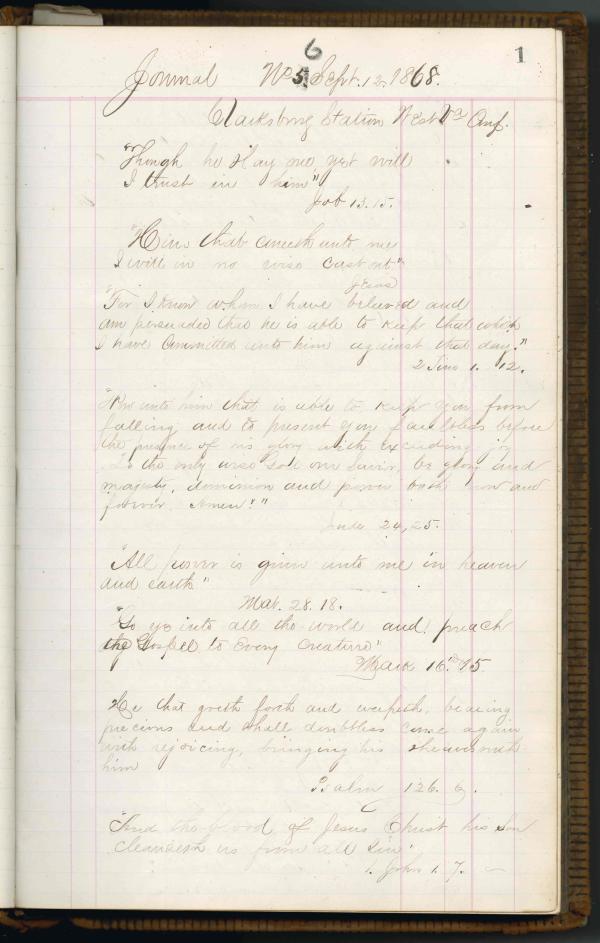 6
1
Journal No 5. Sept. 12. 1868.
Clarksburg Station West Va Conf.
"Though he slay me, yet will
I trust in him"
Job 13. 15.
"Him that cometh unto me
I will in no wise cast out."
Jesus
"For I know whom I have believed and
am persuaded that he is able to keep that which
I have committed unto him against that day."
2 Tim 1. 12.
unto him that is able to keep you from
falling and to present you faultless before
the presence of his glory with exceeding joy
To the only wise God our Savior, be glory and
majesty, dominion and power both now and
forever. Amen."
Jude 24, 25.
"All power is given unto me in heaven
and earth"
Mat. 28. 18.
"Go ye into all the world and preach
the Gospel to every creature"
Mark 16. 15.
He that goeth forth and weepeth, bearing
precious and shall doubtless come again
with rejoicing, bringing his sheaves with
him
Psalm 126. 6.
"And the blood of Jesus Christ his Son
cleanseth us from all sin"
1. John 1. 7.